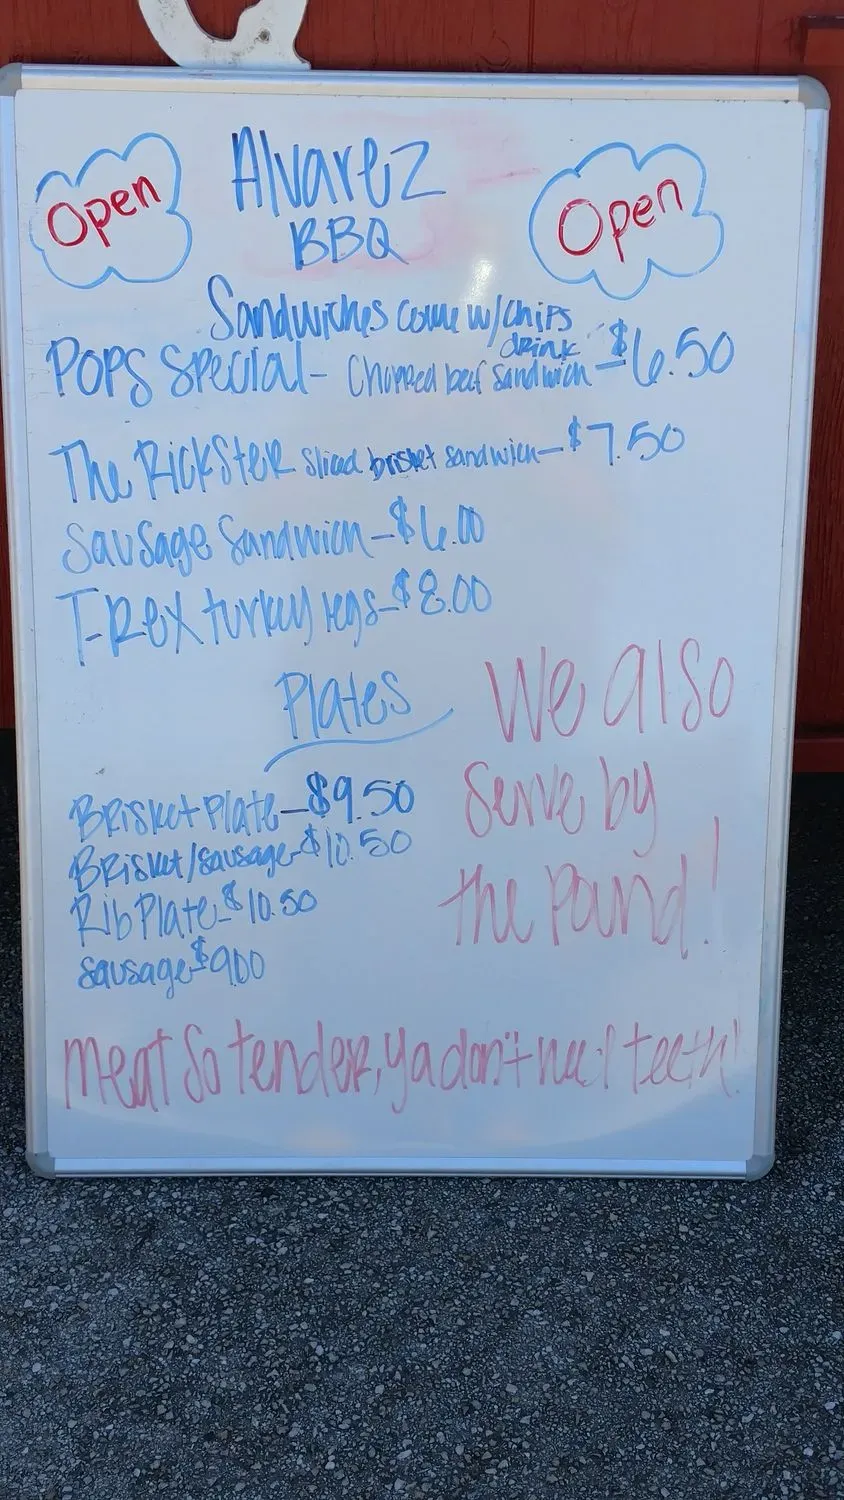 Open
Alvarez
BBQ
Open
Sandwiches come w/chips
drink
Pops Special- Chopped beef sandwich-$6.50
The Rickster sliced brisket sandwich-$7.50
Sausage Sandwich-$6.00
T-Rex turkey legs-$8.00
Plates
Brisket Plate-$9.50
Brisket/sausage-$10.50
Rib Plate-$10.50
sausage-$9.00
We also
serve by
the Pound!
meat so tender, ya don't need teeth!